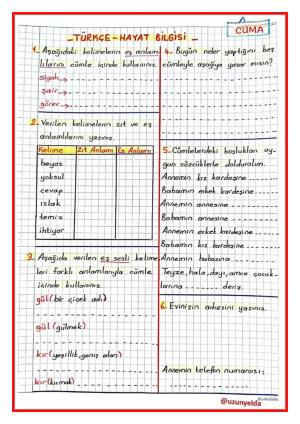 CUMA
_TÜRKÇE-HAYAT BİLGİSİ_
1. Aşağıdaki kelimelerin eş anlam
lılarını cümle içinde kullanınız.
siyah→
şair→
görev→
2. Verilen kelimelerin zıt ve eş
anlamlılarını yazınız.
Kelime Zıt Anlamı Eş Anlamı
beyaz
yoksul
cevap
ıslak
temiz
ihtiyar
3. Aşağıda verilen eş sesli kelime
leri farklı anlamlarıyla cümle
içinde kullanınız.
gül(bir çiçek adı)
gül (gülmek)
kır(yeşillik, geniş alan)
kır(kırmak)
4. Bugün neler yaptığını beş
cümleyle aşağıya yazar mısın?
5. Cümlelerdeki boşlukları uy-
gun sözcüklerle dolduralım.
Annemin kız kardeşine
Babamın erkek kardeşine
Annemin annesine
Babamın annesine
Annemin erkek kardeşine
Babamın kız kardeşine
Annemin babasına
Teyze, hala, dayı, amca çocuk-
larına deriz.
6. Evinizin adresini yazınız.
Annemin telefon numarası:
@uzunyelda